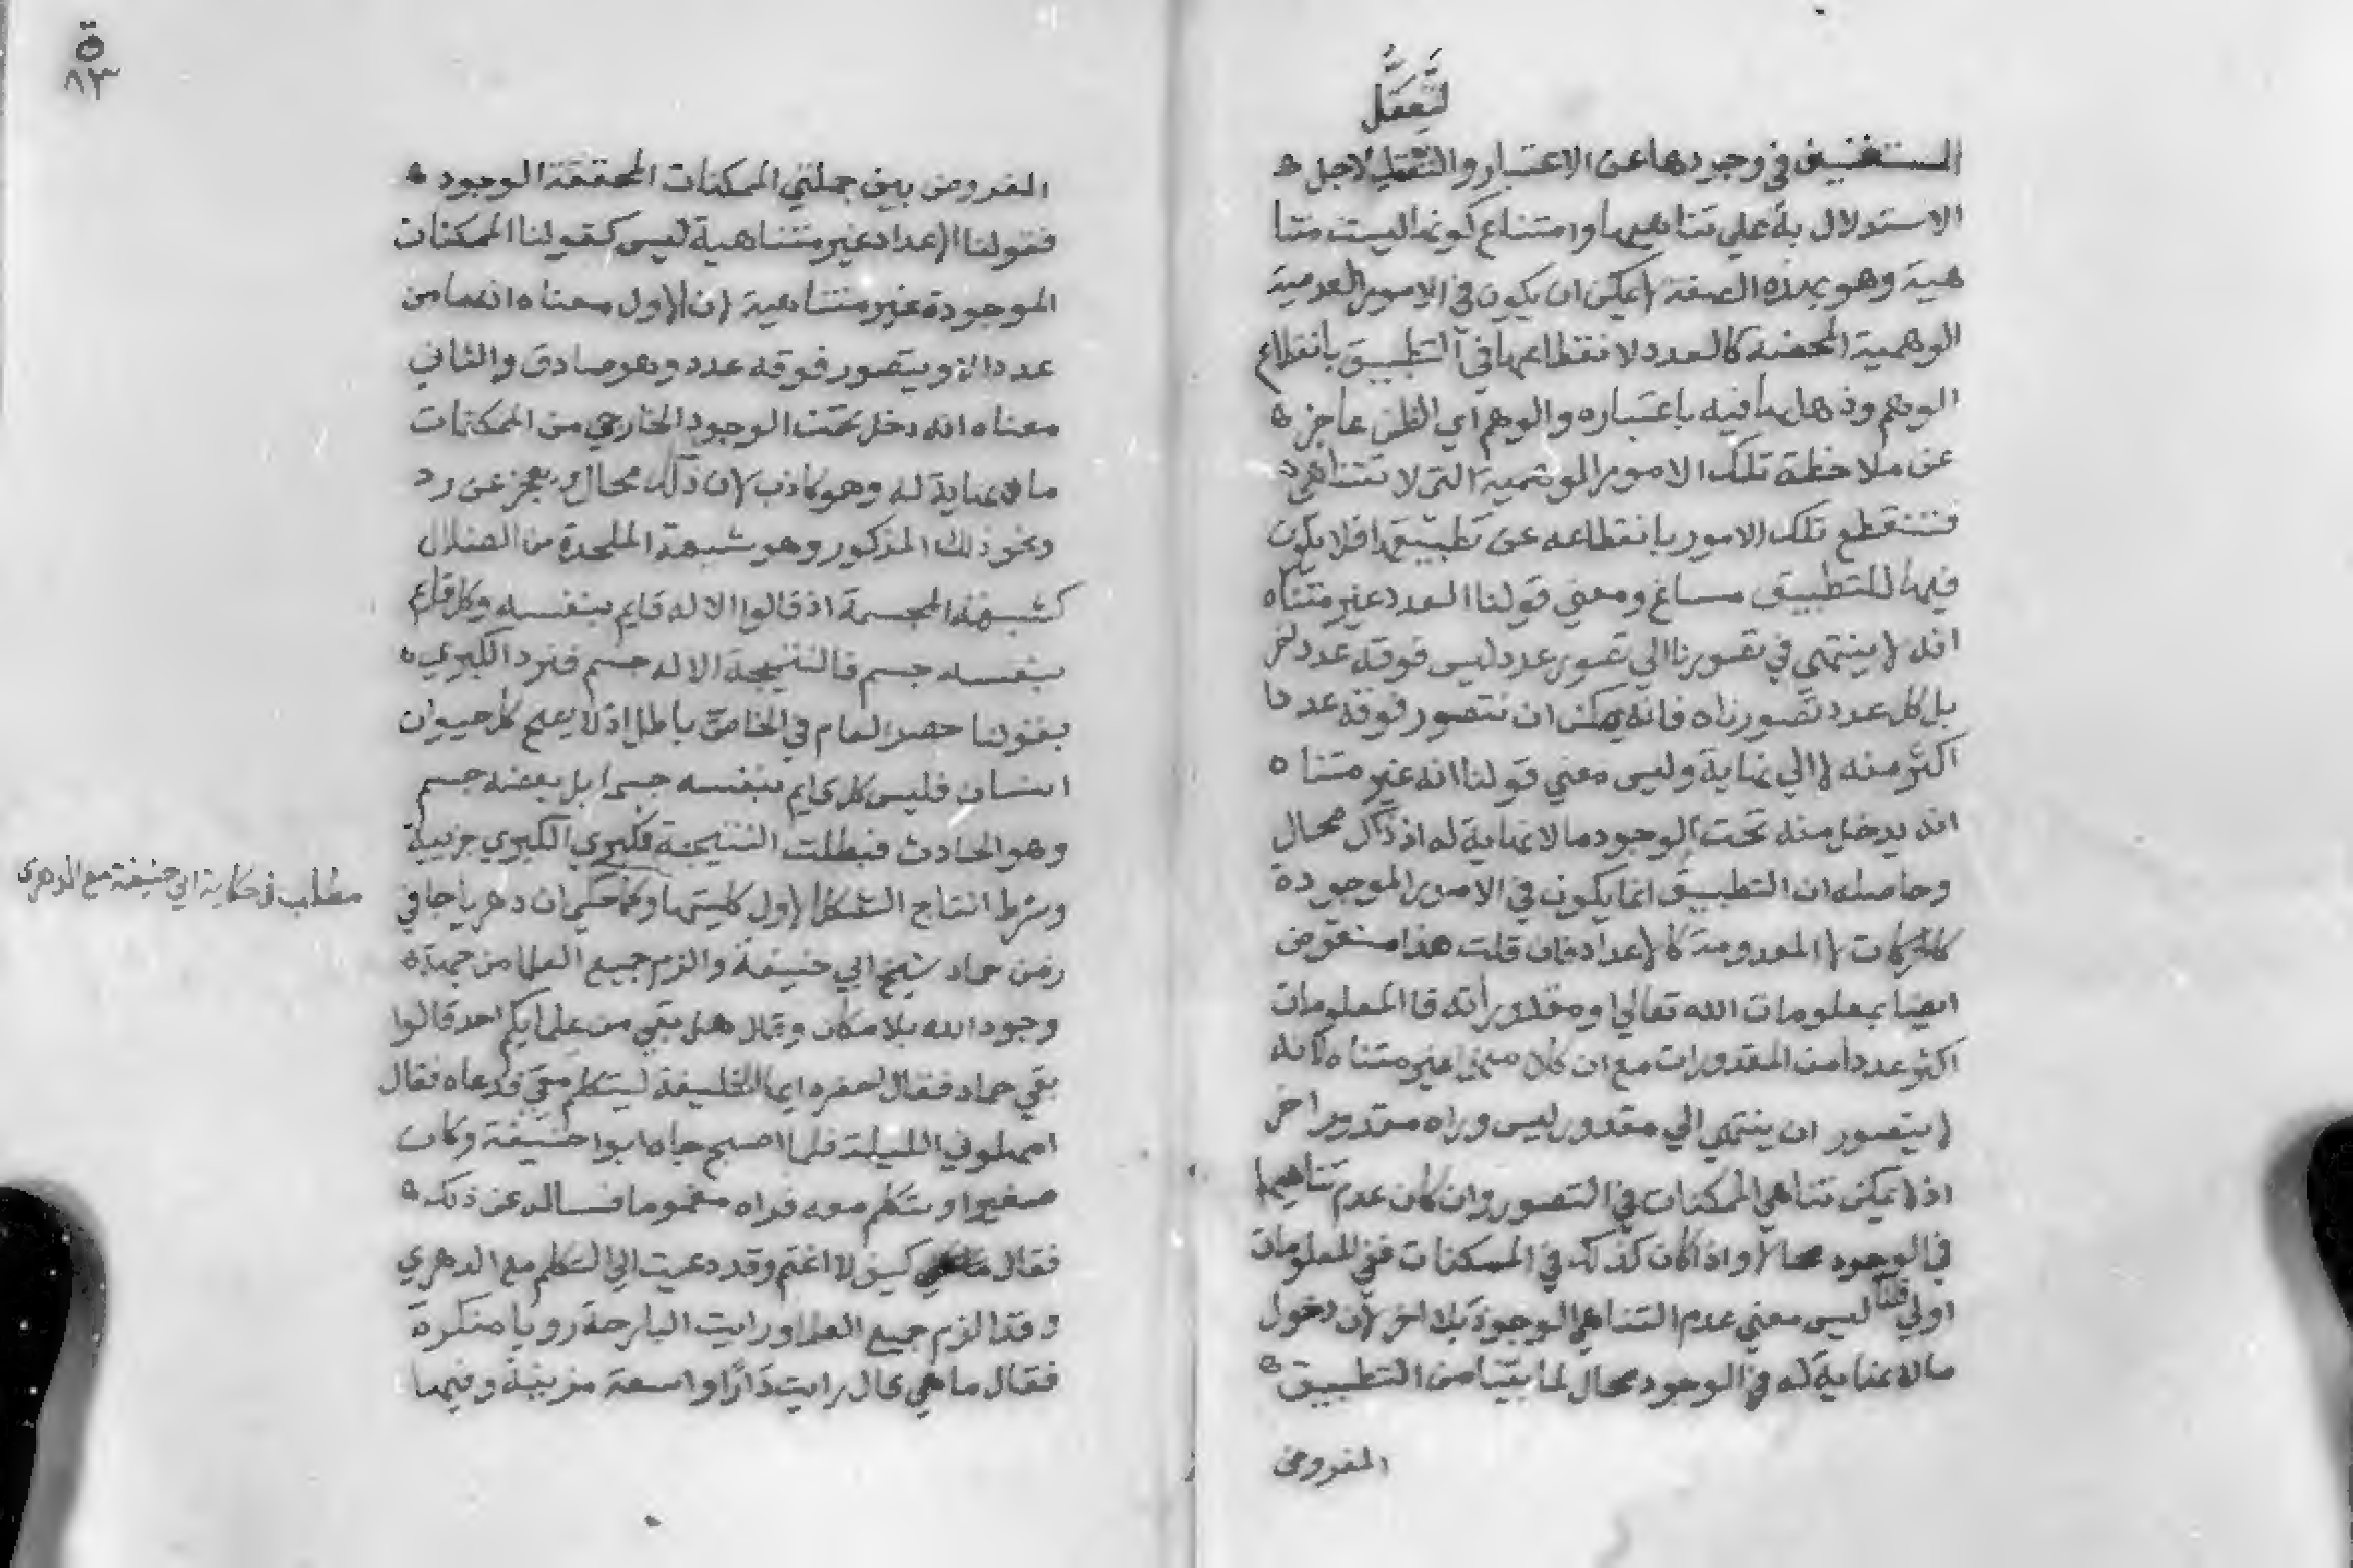 لتعقل
المستغنيين في وجودها عن الاعتبار والتعقل لاجل
الاستدلال به علي تناهيها وامتناع كونها ليست متنا
هية وهو بهذه الصفة لا يمكن ان يكون في الامور العدمية
الوهمية المحضة كالعدد لانقطاعها في التطبيق بانقطاع
الوهم وذهابها فيه باعتباره والوهم اي الظن عاجز
عن ملاحظة تلك الامور الموهمية التي لا تتناهي
فتنقطع تلك الامور بانقطاعه عن تطبيقها فلا يكون
فيها للتطبيق مساغ ومعني قولنا العدد غير متناه
انه لا ينتهي في تصورنا الي تصور عدد ليس فوقه عدد اخر
بل كل عدد تصورناه فانه يمكن ان نتصور فوقه عددا
اكثر منه لا الي نهاية وليس معني قولنا انه غير متناه
انه يدخل منه تحت الوجود ما لا نهاية له اذ ذاك محال
وحاصله ان التطبيق انما يكون في الامور الموجودة
كالحركات لا المعدومة كالاعداد فان قلت هذا منقوض
ايضا بمعلومات الله تعالي ومقدوراته فالمعلومات
اكثر عددا من المقدورات مع ان كلا منهما غير متناه لانه
لا يتصور ان ينتهي الي مقدور ليس وراه مقدور اخر
اذ لا يمكن تناهي الممكنات في التصور وان كان عدم تناهيها
في الوجود محالا واذا كان كذلك في الممكنات ففي المعلومات
اولي قلنا ليس معني عدم التناهي الوجود بلا اخر لان دخول
ما لا نهاية له في الوجود محال لما بينا من التطبيق
المفروض
ة
٨٣
المفروض بين جملتي الممكنات المحققة الوجود
فقولنا الاعداد غير متناهية ليس كقولنا الممكنات
الموجودة غير متناهية لان الاول معناه انه ما من
عدد الا ويتصور فوقه عدد وهو صادق والثاني
معناه انه دخل تحت الوجود الخارجي من الممكنات
ما لا نهاية له وهو كاذب لان ذلك محال ويعجز عن رد
ونحو ذلك المذكور وهو شبهة الملحدة من الضلال
كشبهة المجسمة اذ قالوا الاله قايم بنفسه وكل قايم
بنفسه جسم فالنتيجة الاله جسم فنرد الكبري
بقولنا حصر العام في الخاص باطل اذ لا يصح كل حيوان
انسان فليس كل قايم بنفسه جسما بل بعضه جسم
وهو الحادث فبطلت النتيجة فكبري الكبري جزيية
وشرط انتاج الشكل الاول كليتها وكما حكي ان دهريا جا في
زمن حماد شيخ ابي حنيفة والزم جميع العلما من جهة
وجود الله بلا مكان وقال هل بقي من علمايكم احد قالوا
بقي حماد فقال احضره ايها الخليفة ليتكلم معي فدعاه فقال
امهلوني الليلة فلما اصبح جاه ابوا حنيفة وكان
صغيرا وتكلم معه فراه مغموما فساله عن ذلك
فقال كيف لا اغتم وقد دعيت الي التكلم مع الدهري
وقد الزم جميع العلما ورايت البارحة رويا منكرة
فقال ما هي قال رايت دارا واسعة مزينة وفيها
مطلب في حكاية ابي حنيفة مع الدهري